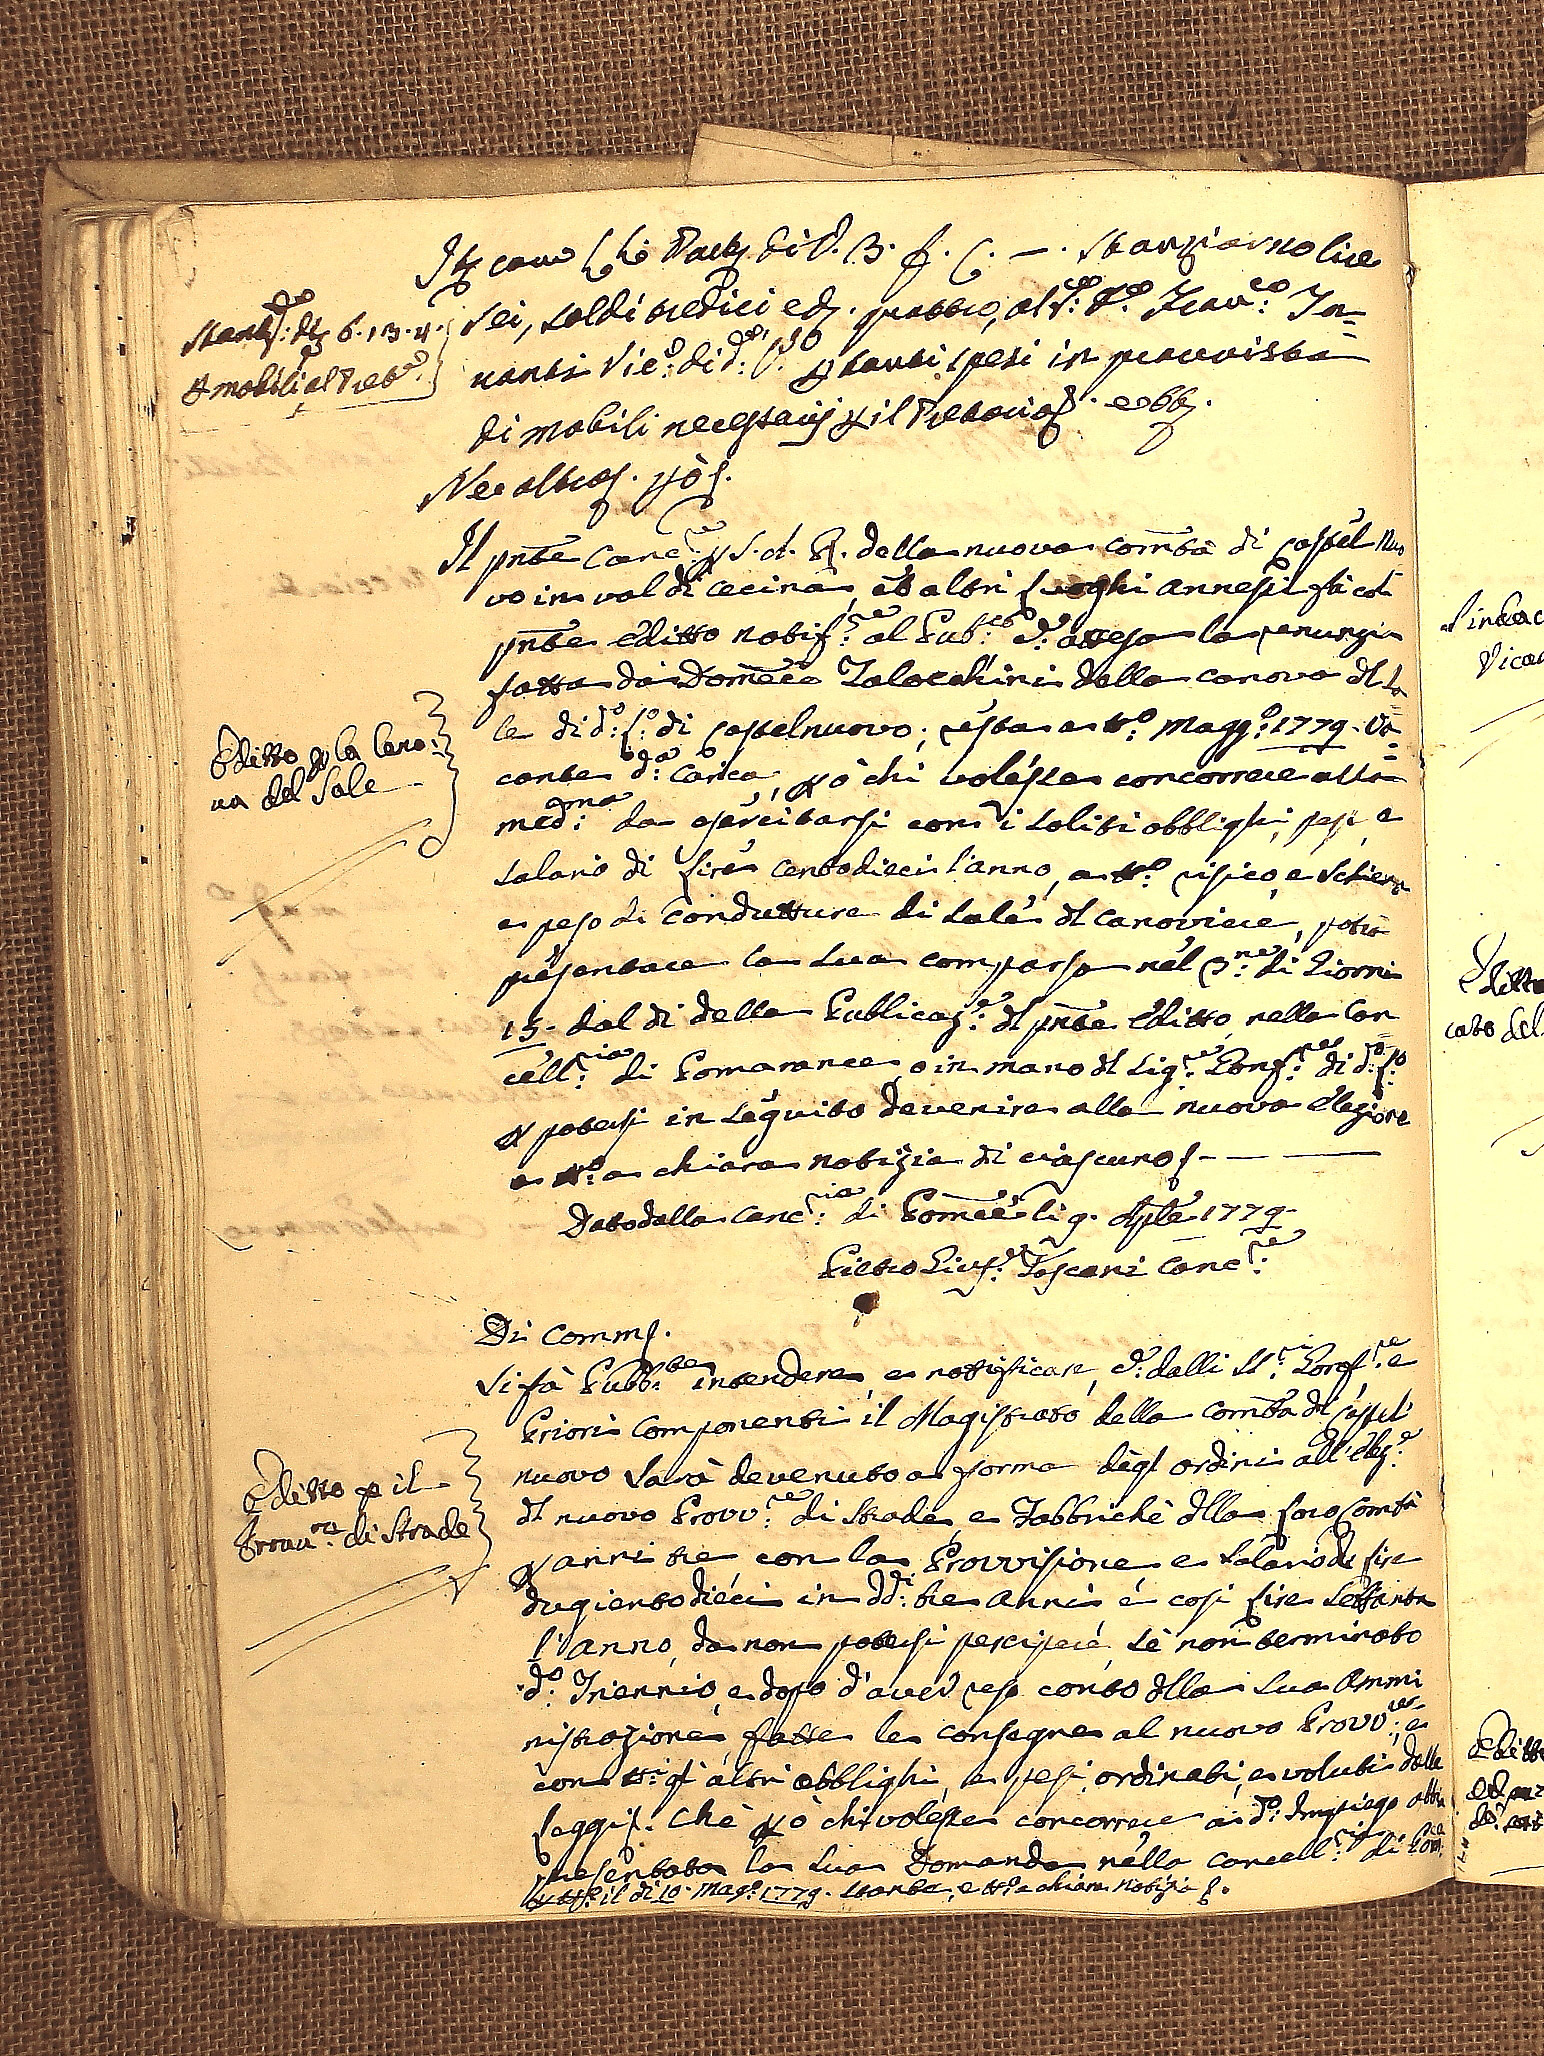 Stanz.to di £ 6.13.4.
p mobili al Pret.o
sei, soldi tredici e d. quattro, al S.r D.re Fran.co In-
nanti Vic.o di d.o L.o p tanti spesi in provvista
di mobili necessarj p il Pretorio
Nec alias. p ò
Il pnte Canc.re p S. A. R. della nuova Comtà di Castel Nuo
vo in val di Cecina, et altri Luoghi annessi fà col
pnte Editto notif.re al Pub.co che attesa la renunzia
fatta da Domeco Talocchini della canova del Sa
le di d.o L.o di Castelnuovo, resta a tt.o Magg.o 1779. Va-
cante d.a Carica, p ò chi volesse concorrere alla
med.ma da esercitarsi con i soliti obblighi, pesi, e
salario di Lire centodieci l'anno, a tt.o risico e Schiena
e peso di condutture di Sale del canoviere, potrà
presentare la sua comparsa nel T.ne di Giorni
15. dal di della Publicaz.e del pnte Editto, nella Can
cell.ria di Pomarance o in mano del Sig.re Gonf.re di d.o L.o
p potersi in seguito devenire alla nuova Elezione
e tt.o a chiara notizia di ciascuno
Editto p la Cano:
va del Sale
Dato dalla Canc.ria di Pomce li 9. Aple 1779.
Pietro Gius.e Toscani Canc.re
Di Comm.
Si fà Pubb.te intendere, e nottificare, che dalli SS.ri Gonf.re e
Priori componenti il Magistrato della Comtà di Castel
nuovo sarà devenuto a forma degl ordini all'Elez.e
del nuovo Provv.re di Strade, e Fabbriche della loro Comtà
p anni tre con la Provvisione e Salario di Lire
dugientodieci in dd.i tre anni e così Lire Settanta
l'anno, da non potersi percipere, se non terminato
d.o Triennio, e dopo d'aver reso conto della sua Ammi
nistrazione, fatte le consegne al nuovo Provv.re, e
con tt.i gl'altri obblighi, e pesi ordinati, e voluti dalle
Leggi. Che p ò chi volesse concorrere a d.o Impiego abbia
presentato la sua Domanda nella Cancell.ria di Pom.ce
p tt.o il dì 10. Mag.o 1779. stante, e tt.o a chiara notizia
Editto p il
Provv.re di Strade